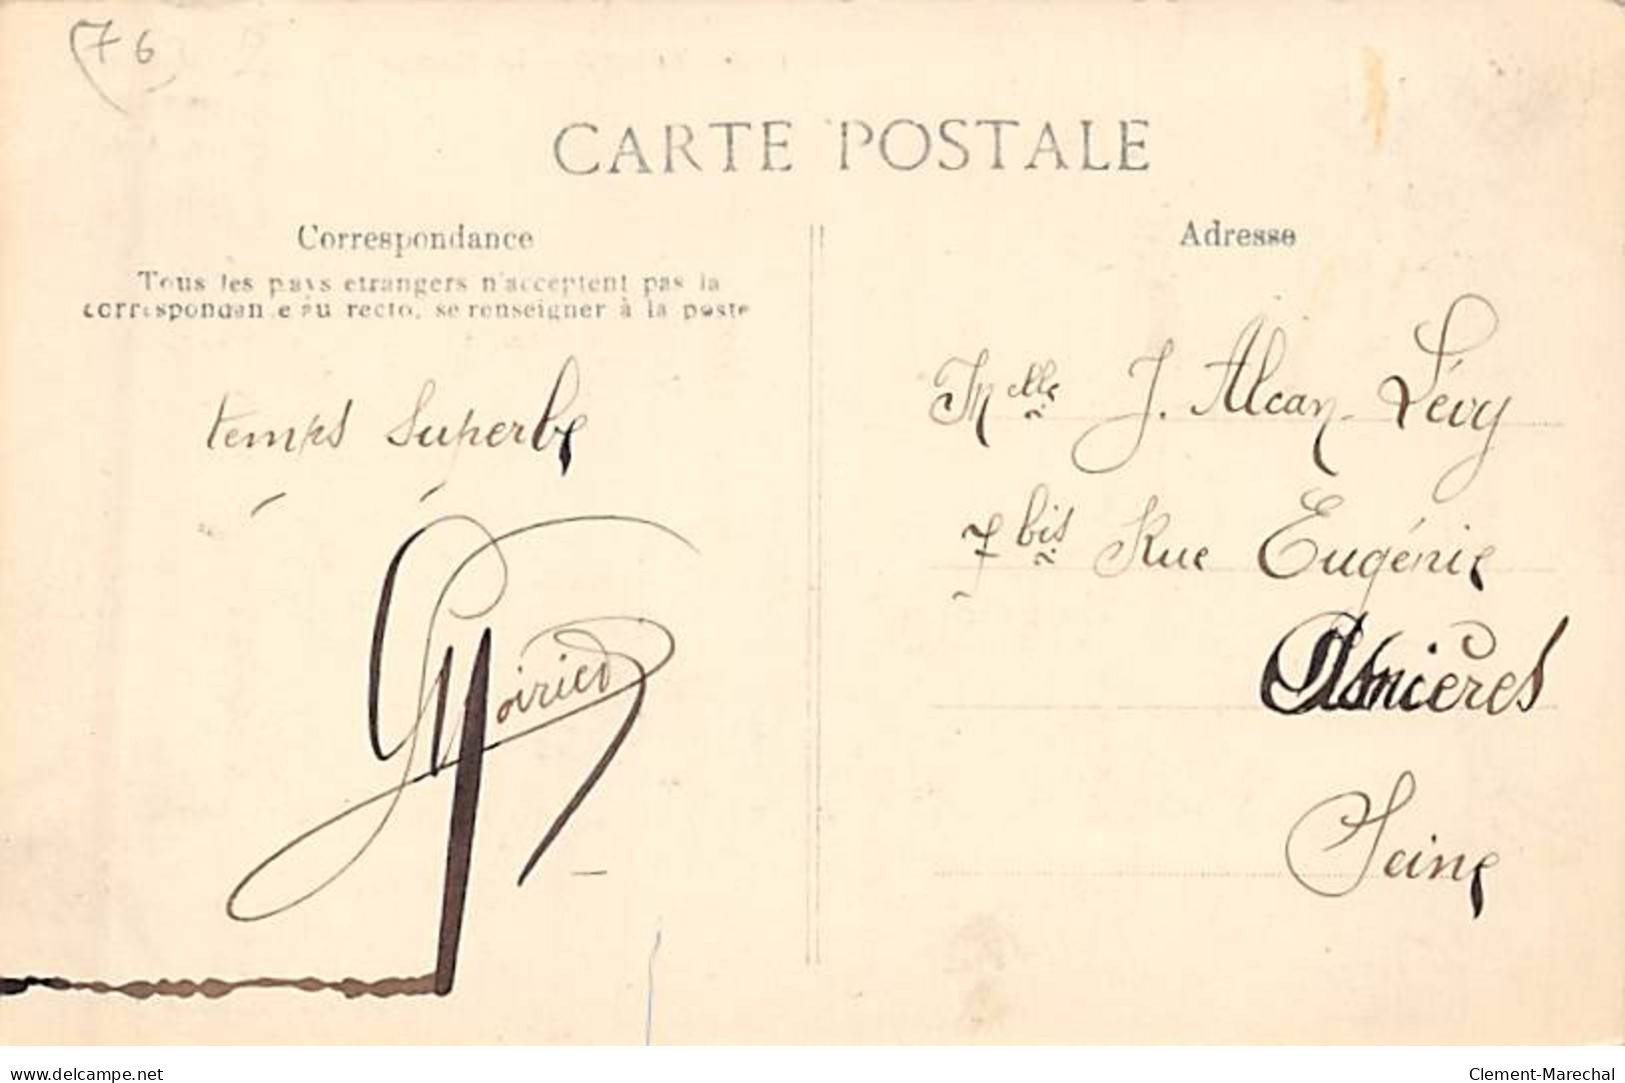 76
CARTE POSTALE
Correspondance
Tous les pays etrangers n'acceptent pas la
correspondance au recto, se renseigner à la poste
temps Superbe
Adresse
Melle J. Alcan-Lévy
7 bis Rue Eugénie
Asnières
Seine
delcampe.net
Clement-Marechal